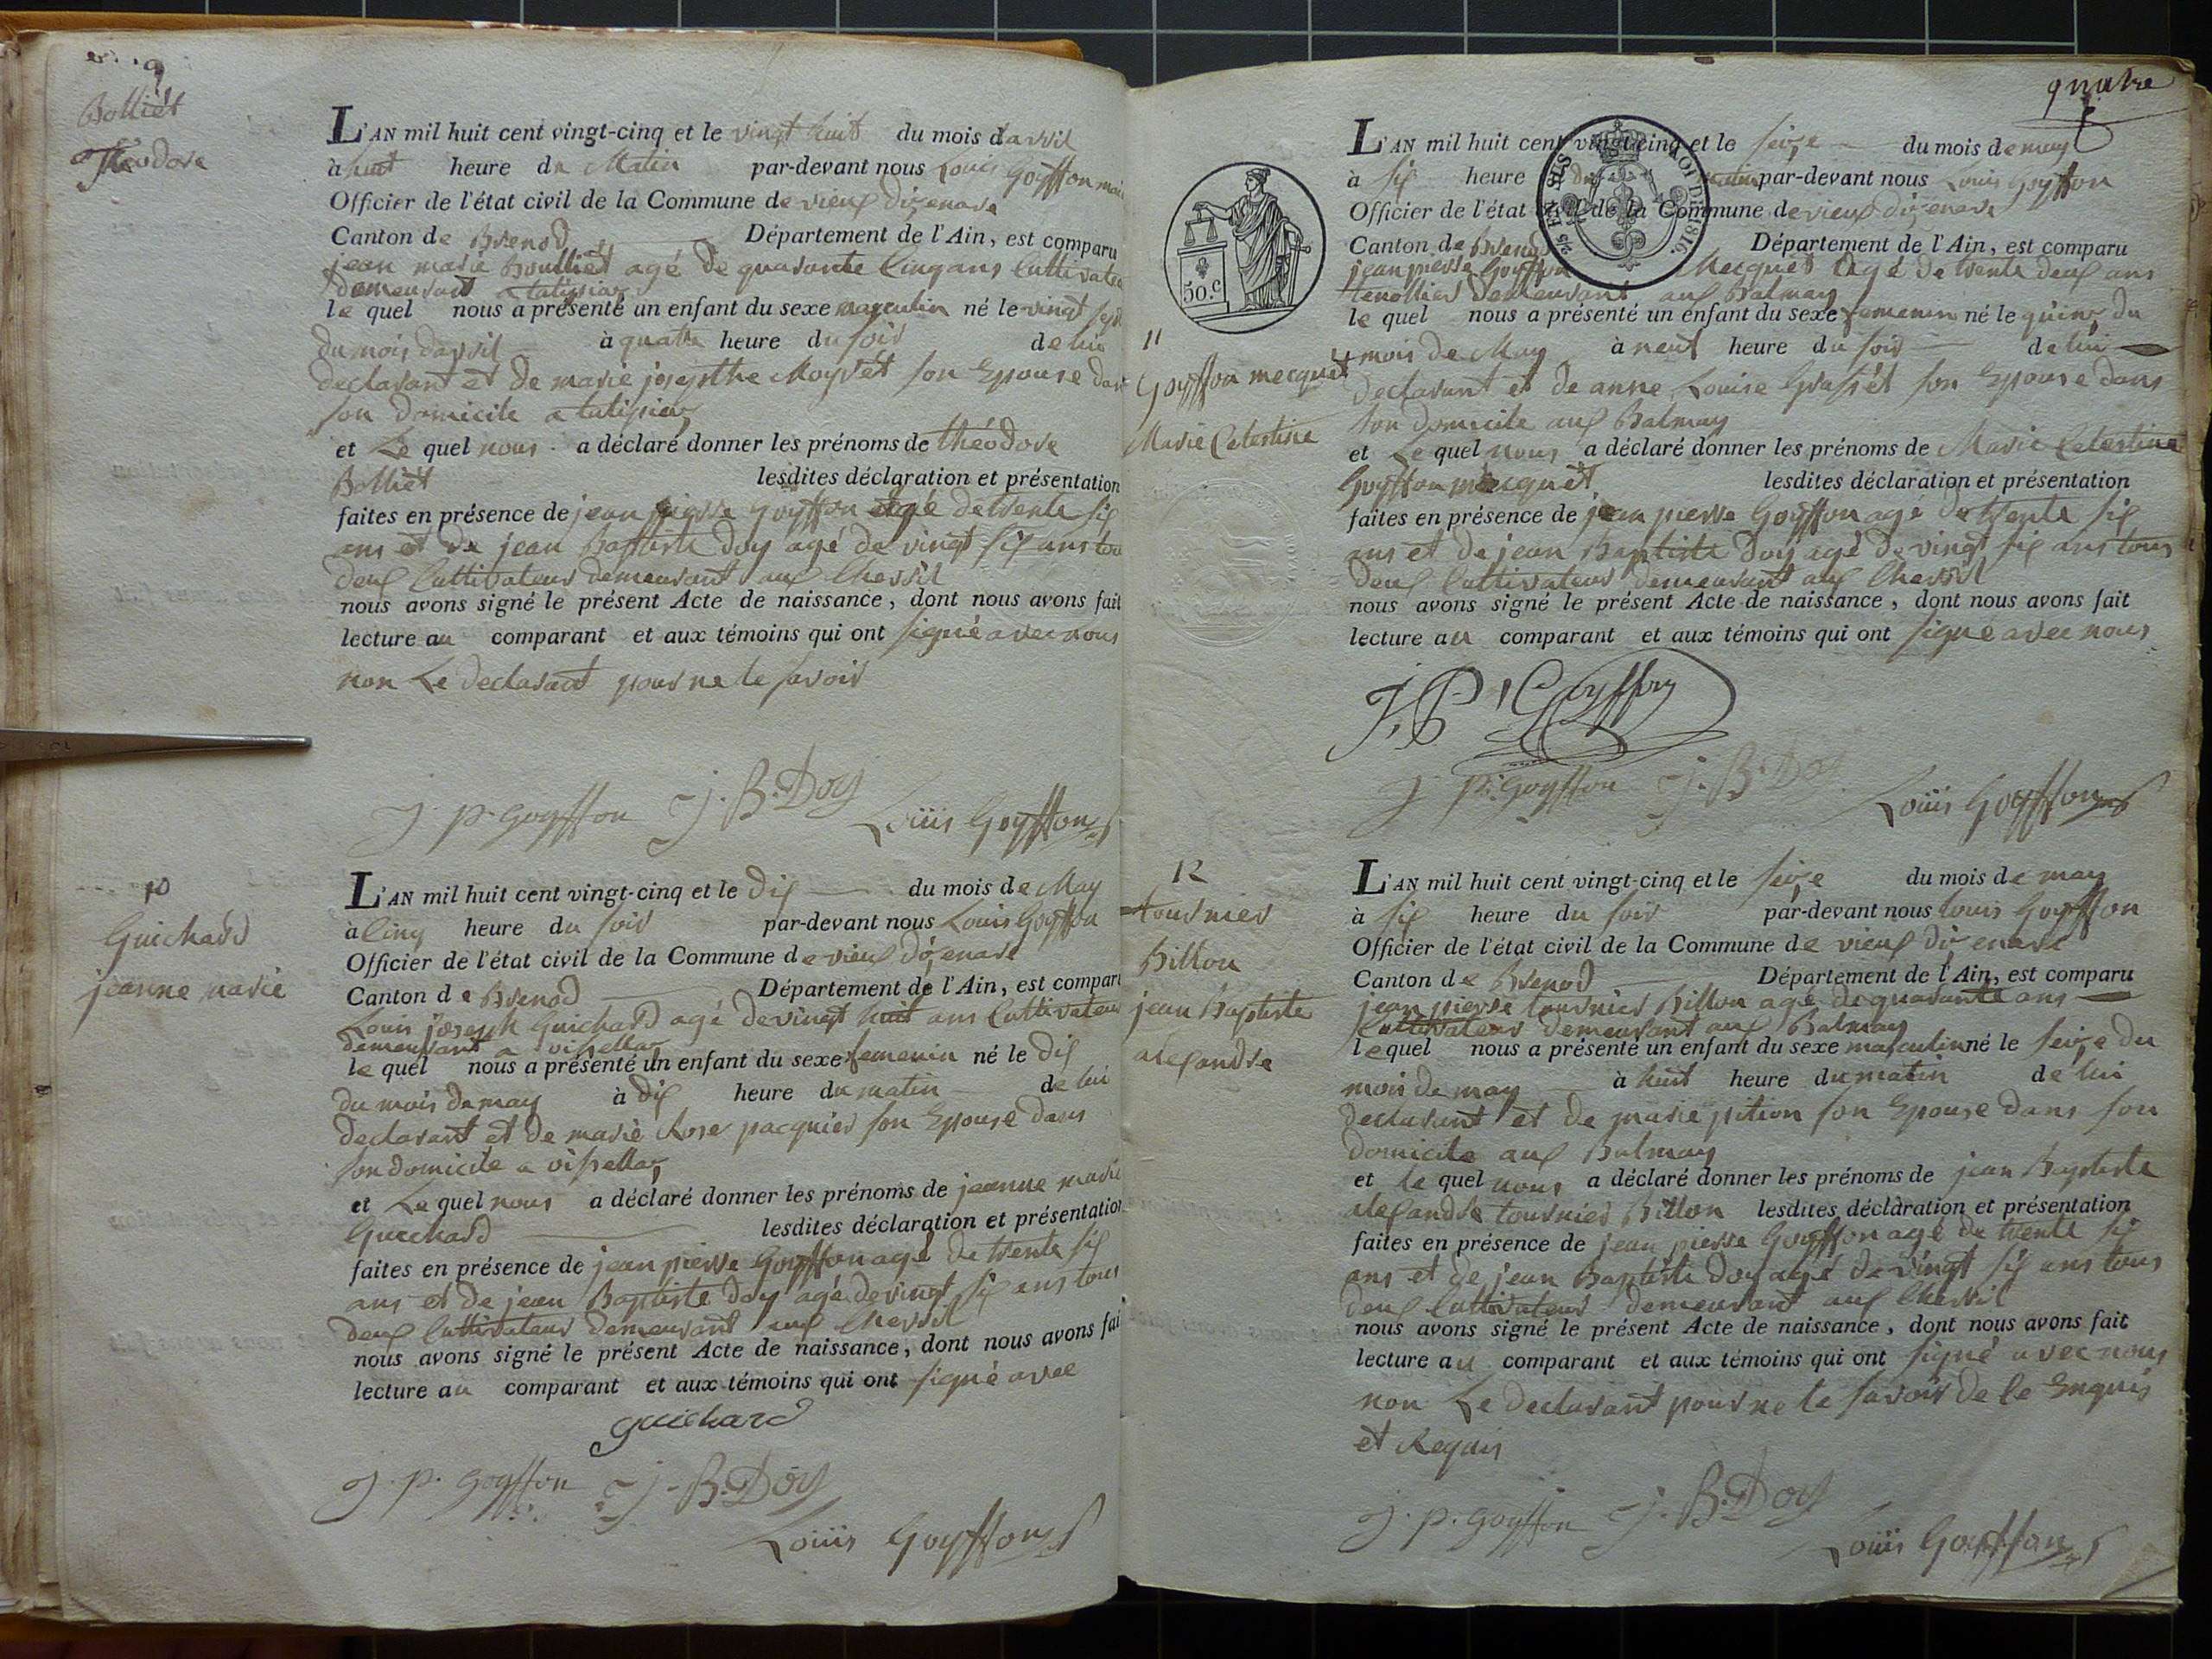 9
Bolliét
théodore
L'AN mil huit cent vingt-cinq et le vingt huit du mois davril
à huit heure du Matin par-devant nous Louis Goyffon
Officier de l'état civil de la Commune de vieux dizenave
Canton de Brenod Département de l'Ain, est comparu
jean marie Boulliét agé de quarante Cinq ans Cultivateur
demeurant a talipiaz
le quel nous a présenté un enfant du sexe masculin né le vingt sept
du mois davril à quatre heure du soir de lui
declarant et de marie josepthe Moyrét son Epouse dans
son domicile a talipiaz
et Le quel nous a déclaré donner les prénoms de théodore
Bolliét lesdites déclaration et présentation
faites en présence de jean pierre goyffon agé de trente six
ans et de jean Baptiste doy agé de vingt six ans tou
deux Cultivateur demeurant aux Chevril
nous avons signé le présent Acte de naissance, dont nous avons fait
lecture au comparant et aux témoins qui ont signé avec nous
non Le declarant pour ne le savoir
J. p. goyffon J. B. Doy
Loüis Goyffon
10
Guichard
jeanne marie
L'AN mil huit cent vingt-cinq et le dix du mois de May
à Cinq heure du soir par-devant nous Louis Goyffon
Officier de l'état civil de la Commune de vieux dizenave
Canton de Brenod Département de l'Ain, est comparu
Louis joseph Guichard agé de vingt huit ans Cultivateur
demeurant a vissellaz
le quel nous a présenté un enfant du sexe femenin né le dix
du mois de may à dix heure du matin de lui
declarant et de marie Rose pacquier son Epouse dans
son domicile a vissellaz
et Le quel nous a déclaré donner les prénoms de jeanne marie
Guichard lesdites déclaration et présentation
faites en présence de jean pierre Goyffon agé de trente six
ans et de jean Baptiste doy agé de vingt six ans tous
deux Cultivateur demeurant aux Chevril
nous avons signé le présent Acte de naissance, dont nous avons fai
lecture au comparant et aux témoins qui ont signé avec
guichard
J. p. goyffon J. B. Doy
Loüis Goyffon
quatre
50.c
ROI DE 1816.
L'AN mil huit cent vingt-cinq et le seize du mois de may
à six heure du matin par-devant nous Louis goyffon
Officier de l'état civil de la Commune de vieux dizenave
Canton de Brenod Département de l'Ain, est comparu
jean pierre Goyffon Mecquet agé de trente deux ans
tenollier demeurant aux Balmay
le quel nous a présenté un enfant du sexe femenin né le quinze du
11
Goyffon mecquet
Marie Celestine
mois de May à neuf heure du soir de lui
declarant et de anne Louise Grassét son Epouse dans
son domicile aux Balmay
et Le quel nous a déclaré donner les prénoms de Marie Celestine
Goyffon mecquet lesdites déclaration et présentation
faites en présence de jean pierre Goyffon agé de trente six
ans et de jean Baptiste doy agé de vingt six ans tous
deux Cultivateur demeurant aux Chevril
nous avons signé le présent Acte de naissance, dont nous avons fait
lecture au comparant et aux témoins qui ont signé avec nous
J. P Goyffon
J P. goyffon J. B. Doy
Loüis Goyffon
12
tournier
Billon
jean Baptiste
alexandre
L'AN mil huit cent vingt-cinq et le seize du mois de may
à six heure du soir par-devant nous Louis Goyffon
Officier de l'état civil de la Commune de vieux dizenave
Canton de Brenod Département de l'Ain, est comparu
jean pierre tournier Billon agé de quarante ans
Cultivateur demeurant aux Balmay
le quel nous a présenté un enfant du sexe masculin né le seize du
mois de may à huit heure du matin de lui
declarant et de marie pition son Epouse dans son
domicile aux Balmay
et le quel nous a déclaré donner les prénoms de jean Baptiste
alexandre tournier Billon lesdites déclaration et présentation
faites en présence de jean pierre Goyffon agé de trente six
ans et de jean Baptiste doy agé de vingt six ans tous
deux Cultivateur demeurant aux Chevril
nous avons signé le présent Acte de naissance, dont nous avons fait
lecture au comparant et aux témoins qui ont signé avec nous
non Le declarant pour ne le savoir de ce Enquis
et Requis
J. p. goyffon J. B. Doy
Loüis Goyffon